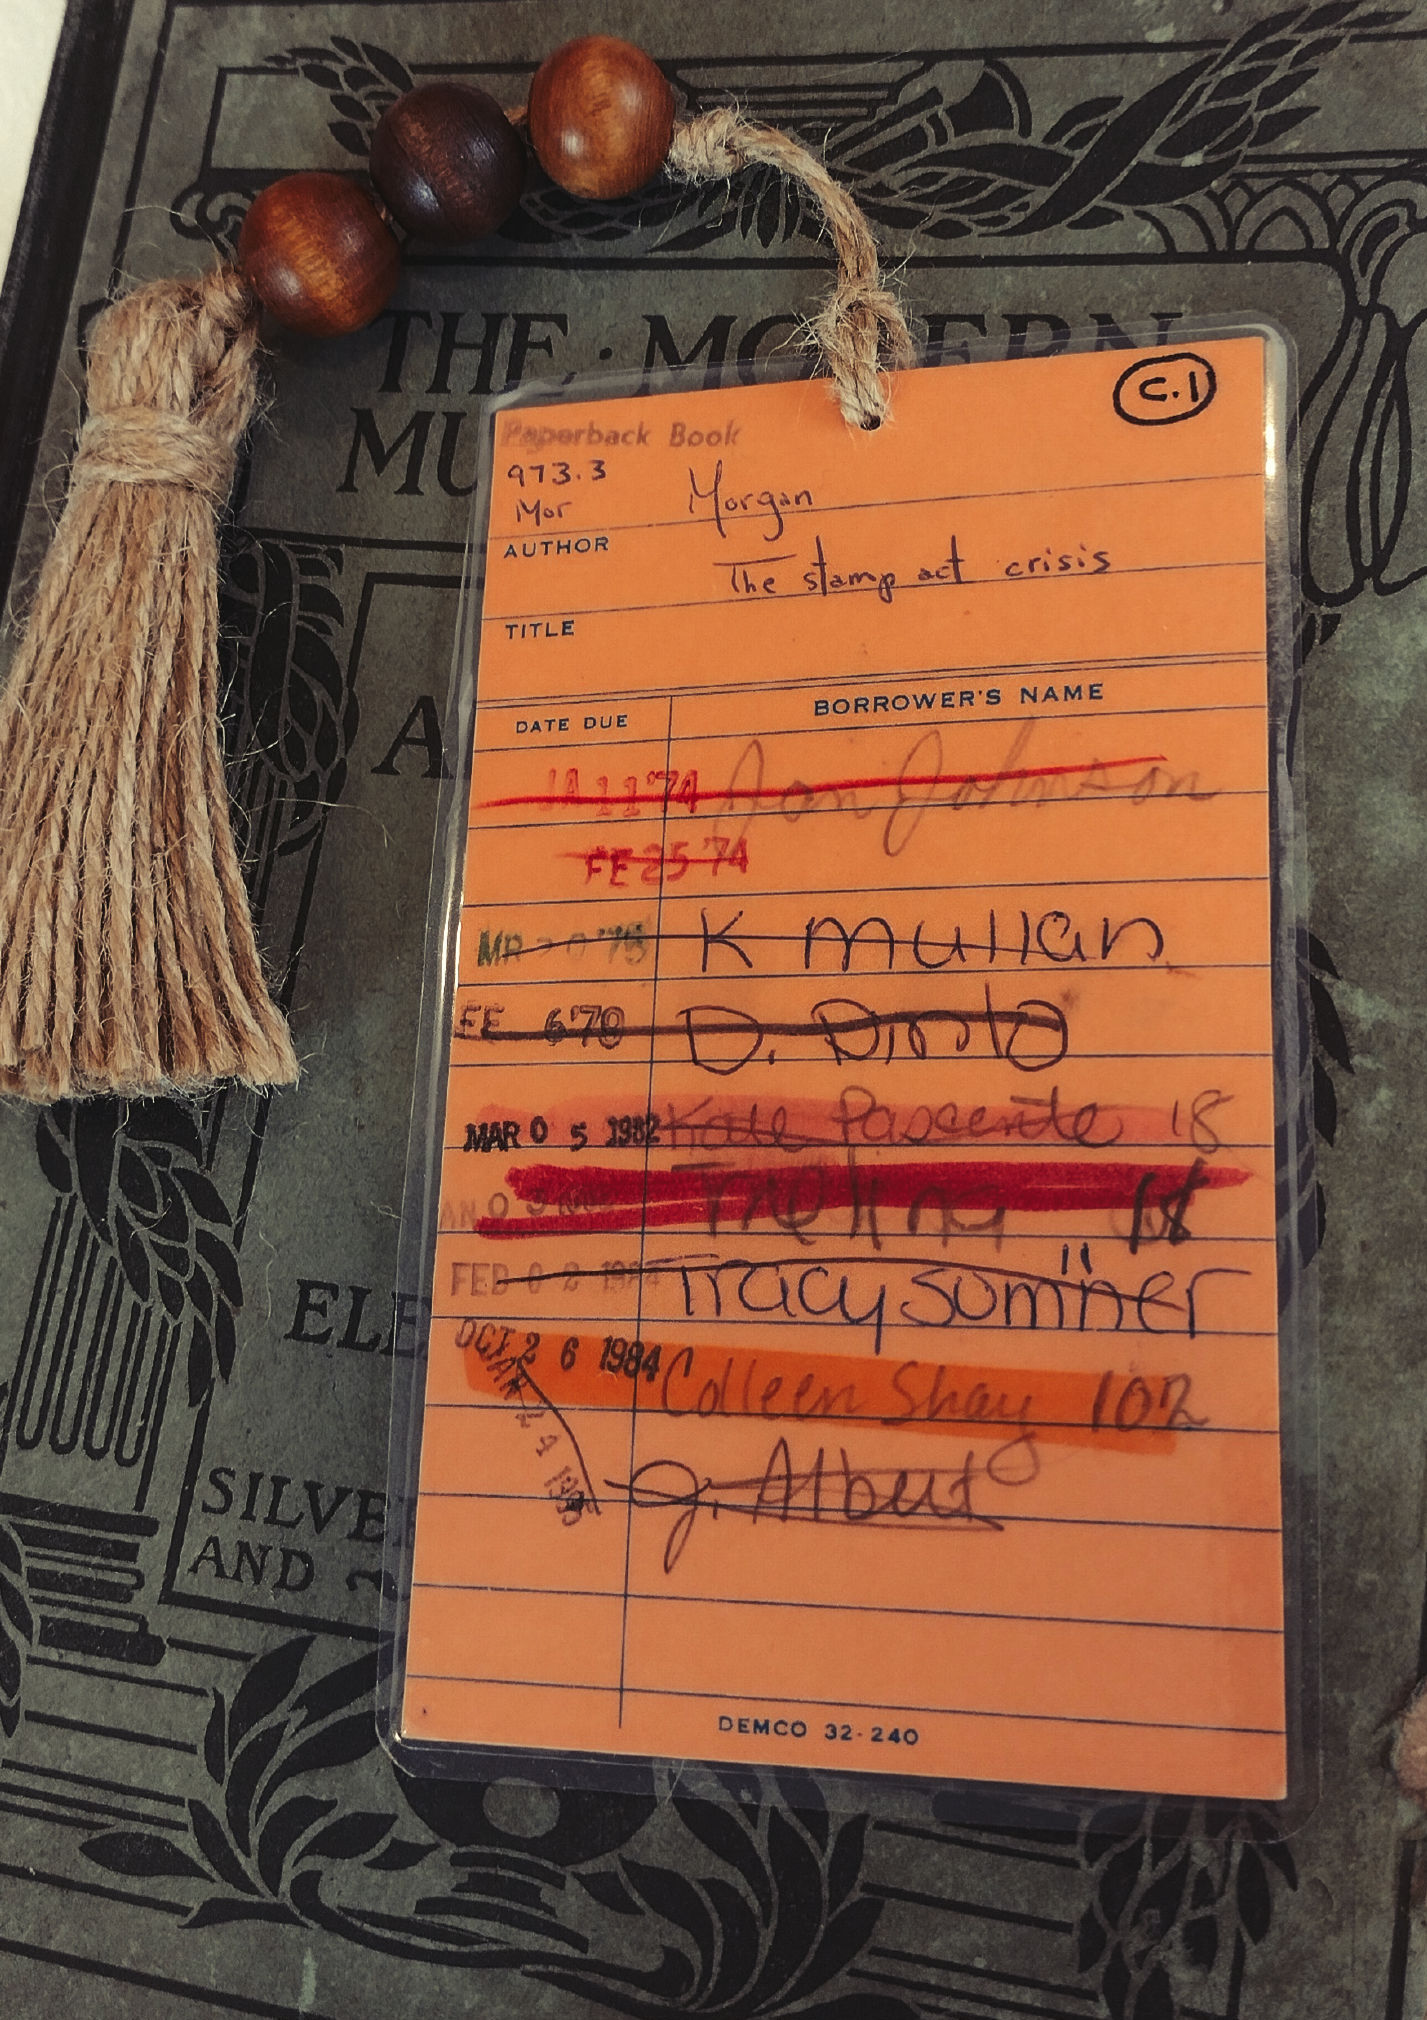 THE · MODERN
MU
A
ELE
SILVE
AND
C.1
Paperback Book
973.3
Mor Morgan
AUTHOR
The stamp act crisis
TITLE
DATE DUE BORROWER'S NAME
JA 11 '74 Jon Johnson
FE 25 '74
MR K Mullan
FE 6 '78 D. Dinto
MAR 0 5 1982 Kate Pascente 18
18
FEB 0 2 1984 Tracy Sumner
OCT 2 6 1984 Colleen Shay 102
JAN 2 4 1985 J. Albert
DEMCO 32-240